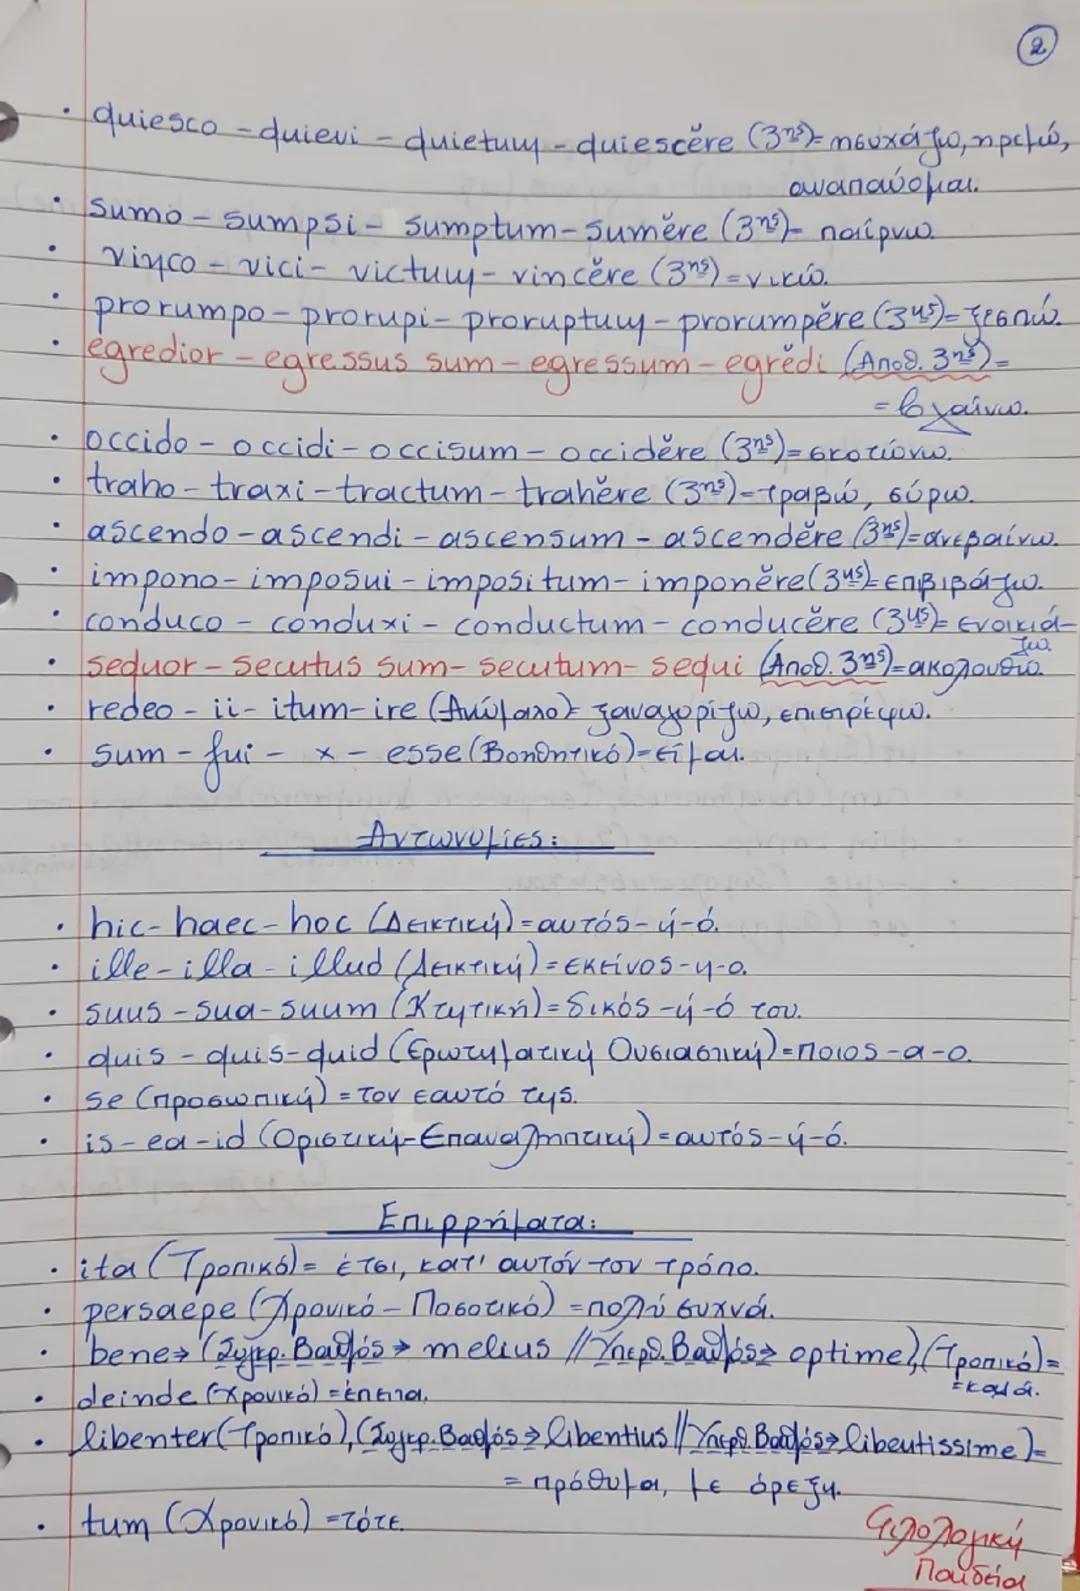 2
• quiesco - quievi - quietum - quiescĕre (3ης)= ησυχάζω, ηρεμώ,
αναπαύομαι.
• sumo - sumpsi - sumptum - sumĕre (3ης)= παίρνω.
• vinco - vici - victum - vincĕre (3ης)= νικώ.
• prorumpo - prorupi - proruptum - prorumpĕre (3ης)= ξεσπώ.
• egredior - egressus sum - egressum - egrĕdi (Αποθ. 3ης)=
= βγαίνω.
• occido - occidi - occisum - occidĕre (3ης)= σκοτώνω.
• traho - traxi - tractum - trahĕre (3ης)= τραβώ, σύρω.
• ascendo - ascendi - ascensum - ascendĕre (3ης)= ανεβαίνω.
• impono - imposui - impositum - imponĕre (3ης)= επιβιβάζω.
• conduco - conduxi - conductum - conducĕre (3ης)= ενοικιά-
ζω.
• sequor - secutus sum - secutum - sequi (Αποθ. 3ης)= ακολουθώ.
• redeo - ii - itum - ire (Ανώμαλο)= ξαναγυρίζω, επιστρέφω.
• sum - fui - x - esse (Βοηθητικό)= είμαι.
Αντωνυμίες:
• hic - haec - hoc (Δεικτική) = αυτός - ή - ό.
• ille - illa - illud (Δεικτική) = εκείνος - η - ο.
• suus - sua - suum (Κτητική) = δικός - ή - ό του.
• quis - quis - quid (Ερωτηματική Ουσιαστική) = ποιος - α - ο.
• se (προσωπική) = τον εαυτό της.
• is - ea - id (Οριστική - Επαναληπτική) = αυτός - ή - ό.
Επιρρήματα:
• ita (Τροπικό) = έτσι, κατ' αυτόν τον τρόπο.
• persaepe (Χρονικό - Ποσοτικό) = πολύ συχνά.
• bene → (Συγκρ. Βαθμός → melius // Υπερθ. Βαθμός → optime), (Τροπικό) =
= καλά.
• deinde (χρονικό) = έπειτα.
• libenter (Τροπικό), (Συγκρ. Βαθμός → libentius // Υπερθ. Βαθμός → libentissime) =
= πρόθυμα, με όρεξη.
• tum (Χρονικό) = τότε.
Φιλολογική
Παιδεία